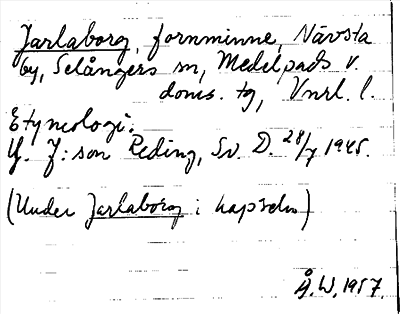 Jarlaborg, fornminne, Nävsta
by, Selångers sn, Medelpads v.
doms. tg, Vnrl. l.
Etymologi:
J:son Reding, Sv. D. 28/7 1945.
(Under Jarlaborg i kapseln)
Å. W. 1957.